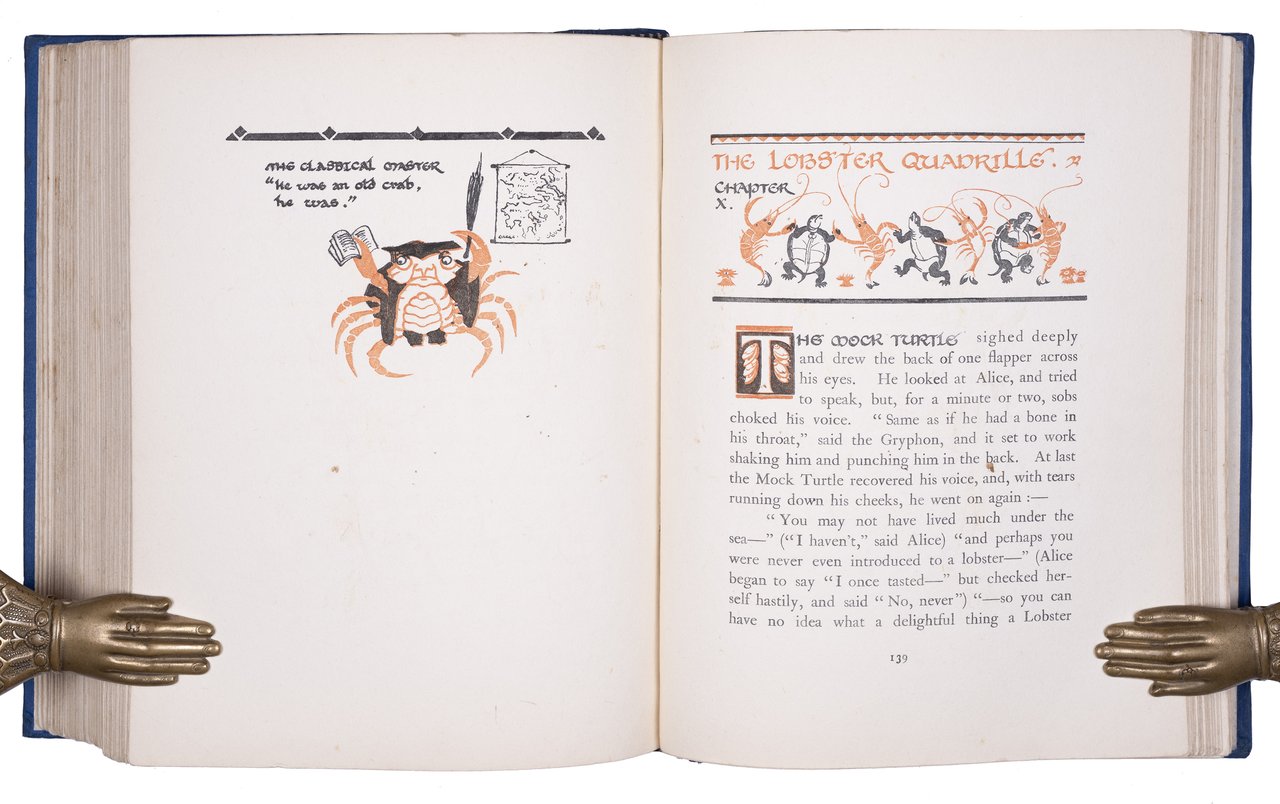 THE CLASSICAL MASTER
"he was an old crab,
he was."
THE LOBSTER QUADRILLE.
CHAPTER
X.
THE MOCK TURTLE sighed deeply
and drew the back of one flapper across
his eyes. He looked at Alice, and tried
to speak, but, for a minute or two, sobs
choked his voice. "Same as if he had a bone in
his throat," said the Gryphon, and it set to work
shaking him and punching him in the back. At last
the Mock Turtle recovered his voice, and, with tears
running down his cheeks, he went on again :—
"You may not have lived much under the
sea—" ("I haven't," said Alice) "and perhaps you
were never even introduced to a lobster—" (Alice
began to say "I once tasted—" but checked her-
self hastily, and said "No, never") "—so you can
have no idea what a delightful thing a Lobster
139